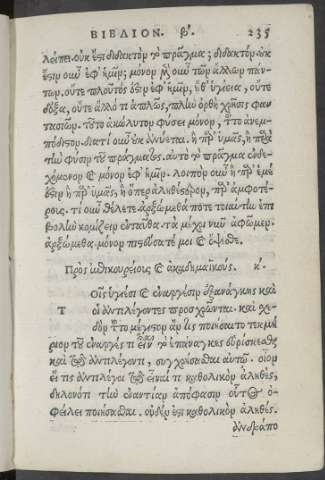 ΒΙΒΛΙΟΝ. β'. 235
λείπει. οὐκ ἔστι διδακτὸν τὸ πρᾶγμα; διδακτόν. οὐκ
ἔστιν οὖν ἐφ' ἡμῖν; μόνον μὲν οὖν τῶν ἄλλων πάν-
των. οὔτε πλοῦτός ἐστιν ἐφ' ἡμῖν, οὔθ' ὑγίεια, οὔτε
δόξα, οὔτε ἄλλό τι ἁπλῶς, πλὴν ὀρθὴ χρῆσις φαν
τασιῶν. τοῦτο ἀκώλυτον φύσει μόνον, τοῦτο ἀνεμ-
πόδιστον. διατί οὖν οὐκ ἀνύεται. ἢ παρ' ὑμᾶς, ἢ παρὰ
τὴν φύσιν τοῦ πράγματος. αὐτὸ τὸ πρᾶγμα ἐνδε-
χόμενον καὶ μόνον ἐφ' ἡμῖν. λοιπὸν οὖν ἢ παρ' ἐμέ
ἐστιν ἢ παρ' ὑμᾶς, ἢ ὅπερ ἀληθέστερον, παρ' ἀμφοτέ-
ροις. τί οὖν θέλετε ἀρξώμεθά ποτε τοιαύτην ἐπι
βολὴν κομίζειν ἐνταῦθα. τὰ μέχρι νῦν ἀφῶμεν.
ἀρξώμεθα μόνον πιστεύσατέ μοι καὶ ὄψεσθε.
Πρὸς ἐπικουρείους καὶ ἀκαδημαϊκούς. κ'.
Τ Οῖς ὑγιέσι καὶ ἐναργέσιν ἐξ ἀνάγκης καὶ
οἱ ἀντιλέγοντες προσχρῶνται. καὶ σχε-
δὸν τοῦτο μέγιστον ἄν τις ποιήσαιτο τεκμή
ριον τοῦ ἐναργές τι εἶναι τὸ ἐπάναγκες εὑρίσκεσθαι
καὶ τῷ ἀντιλέγοντι, συγχρήσασθαι αὐτῷ. οἷον
εἴ τις ἀντιλέγοι τῷ εἶναί τι καθολικὸν ἀληθές,
δηλονότι τὴν ἐναντίαν ἀπόφασιν οὗτος ὀ-
φείλει ποιήσασθαι. οὐδέν ἐστι καθολικὸν ἀληθές.
ἀνδράπο